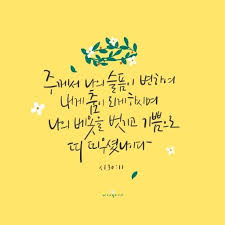 주께서 나의 슬픔이 변하여
내게 춤이 되게 하시며
나의 베옷을 벗기고 기쁨으로
띠 띠우셨나이다
시 30:11